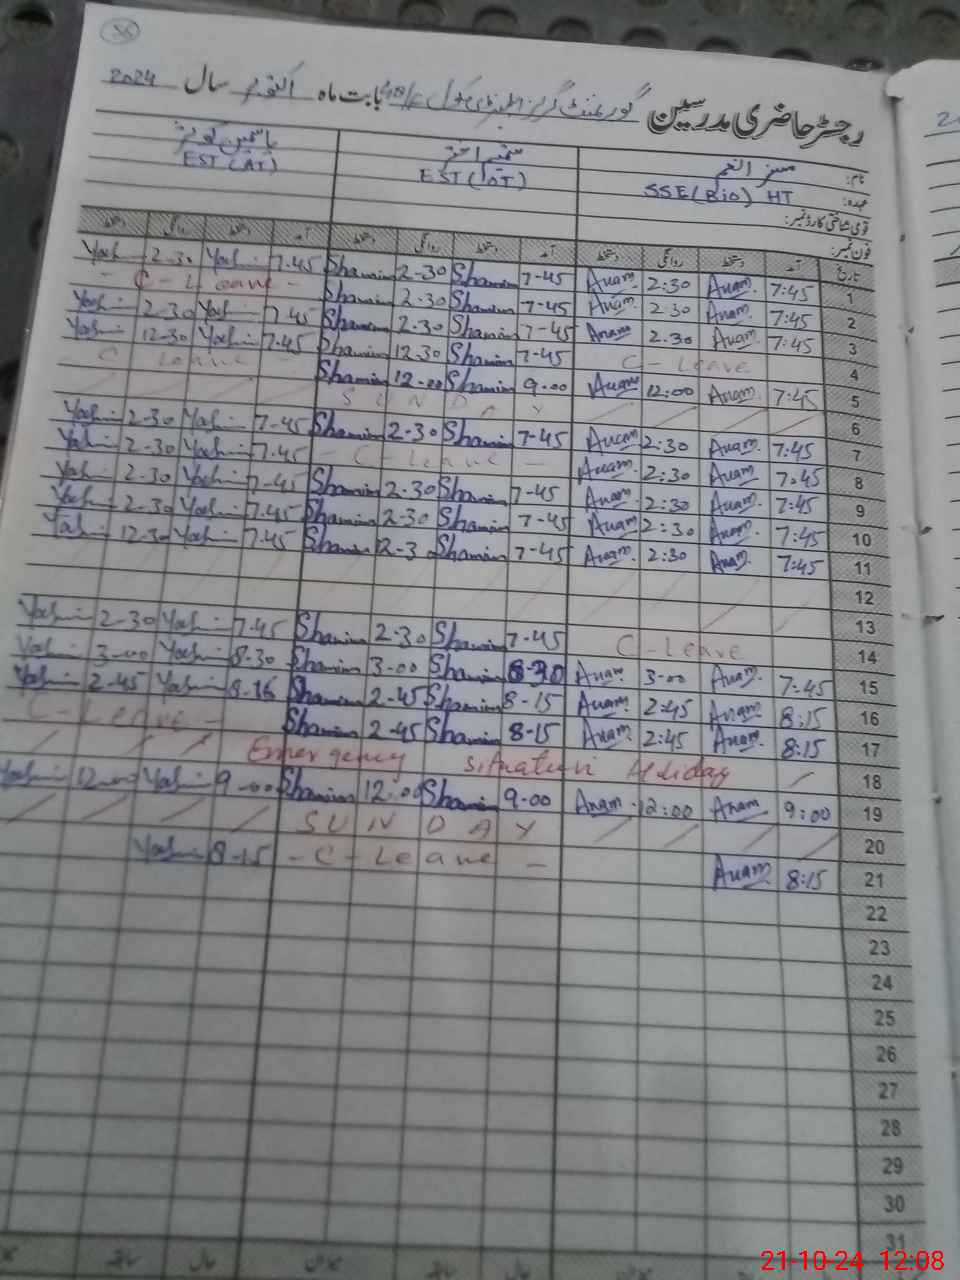 36
رجسٹر حاضری مدرسین گورنمنٹ گرلز بابت ماہ اکتوبر سال 2024
نام: مسز انعم
یاسمین کوثر
عہدہ: SSE(Bio) HT
EST( T)
EST(AT)
قومی شناختی کارڈ نمبر:
فون نمبر:
تاریخ آمد دستخط روانگی دستخط آمد دستخط روانگی دستخط آمد دستخط روانگی دستخط
Yashi 2-30 Yashi 7.45 Shamim 2-30 Shamim 7-45 Anam 2:30 Anam 7:45 1
- C - Leave - Shamim 2-30 Shamim 7-45 Anam 2:30 Anam 7:45 2
Yashi 2-30 Yashi 7.45 Shamim 2-30 Shamim 7-45 Anam 2:30 Anam 7:45 3
Yashi 12-30 Yashi 7.45 Shamim 12.30 Shamim 7-45 C - Leave 4
C Leave - Shamim 12-00 Shamim 9-00 Anam 12:00 Anam 7:45 5
SUNDAY 6
Yashi 2-30 Yashi 7-45 Shamim 2-30 Shamim 7-45 Anam 2:30 Anam 7:45 7
Yashi 2-30 Yashi 7.45 - C - Leave - Anam 2:30 Anam 7:45 8
Yashi 2-30 Yashi 7-45 Shamim 2-30 Shamim 7-45 Anam 2:30 Anam 7:45 9
Yashi 2-30 Yashi 7.45 Shamim 2-30 Shamim 7-45 Anam 2:30 Anam 7:45 10
Yashi 12-30 Yashi 7.45 Shamim 12-3 Shamim 7-45 Anam 2:30 Anam 7:45 11
12
13
Yashi 2-30 Yashi 7.45 Shamim 2-30 Shamim 7-45 C - Leave 14
Yashi 3-00 Yashi 8-30 Shamim 3-00 Shamim 8-30 Anam 3-00 Anam 7:45 15
Yashi 2-45 Yashi 8-16 Shamim 2-45 Shamim 8-15 Anam 2:45 Anam 8:15 16
C - Leave - Shamim 2-45 Shamim 8-15 Anam 2:45 Anam 8:15 17
Emergency situation Holiday 18
Yashi 12-00 Yashi 9-00 Shamim 12.00 Shamim 9-00 Anam 12:00 Anam 9:00 19
SUNDAY 20
Yashi 8-15 - C - Leave - Anam 8:15 21
22
23
24
25
26
27
28
29
30
31
21-10-24 12:08